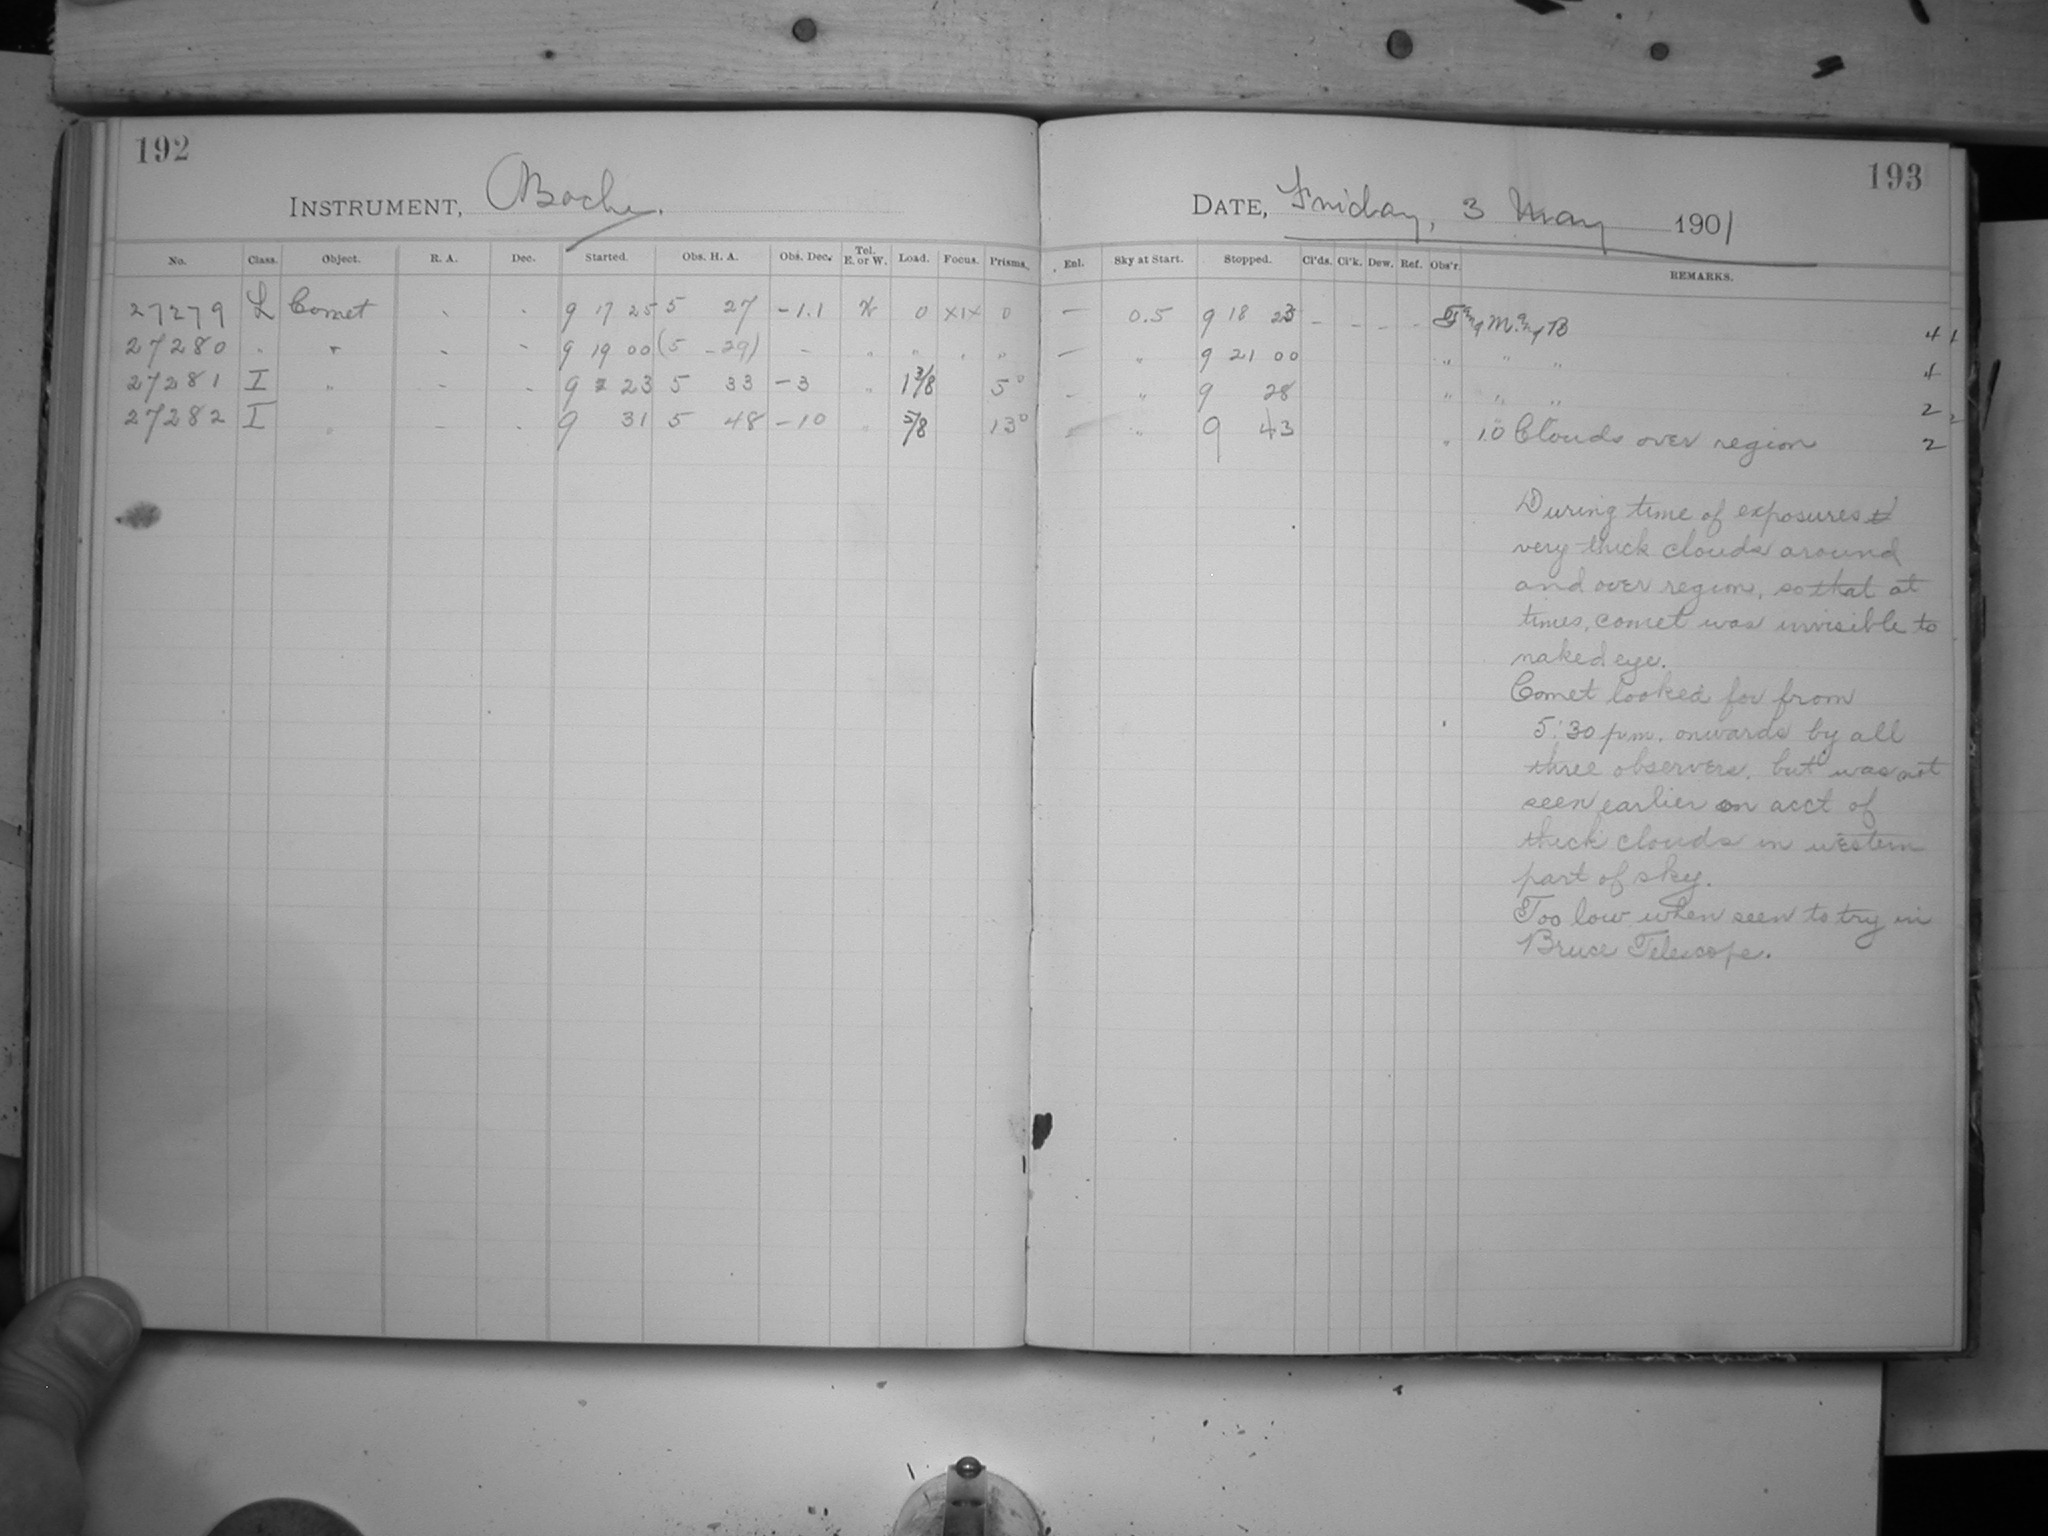 192
INSTRUMENT, Bache.
No. Class. Object. R. A. Dec. Started. Obs. H. A. Obs. Dec. Tel. E. or W. Load. Focus. Prisms.
27279 L Comet - - 9 17 25 5 27 -1.1 W 0 XIX 0
27280 " " - - 9 19 00 (5 -29) - " " " "
27281 I " - - 9 23 5 33 -3 " 1 3/8 5°
27282 I " - - 9 31 5 48 -10 " 5/8 13°
193
DATE, Friday, 3 May 1901
Enl. Sky at Start. Stopped. Cl'ds. Cl'k. Dew. Ref. Obs'r. REMARKS.
— 0.5 9 18 23 - - - - M. B 4 1
— " 9 21 00 " " " 4
- " 9 28 " " " 2 2
- " 9 43 " 10 Clouds over region 2
During time of exposures
very thick clouds around
and over region, so that at
times, comet was invisible to
naked eye.
Comet looked for from
5:30 p.m. onwards by all
three observers. but was not
seen earlier on acct of
thick clouds in western
part of sky.
Too low when seen to try in
Bruce Telescope.